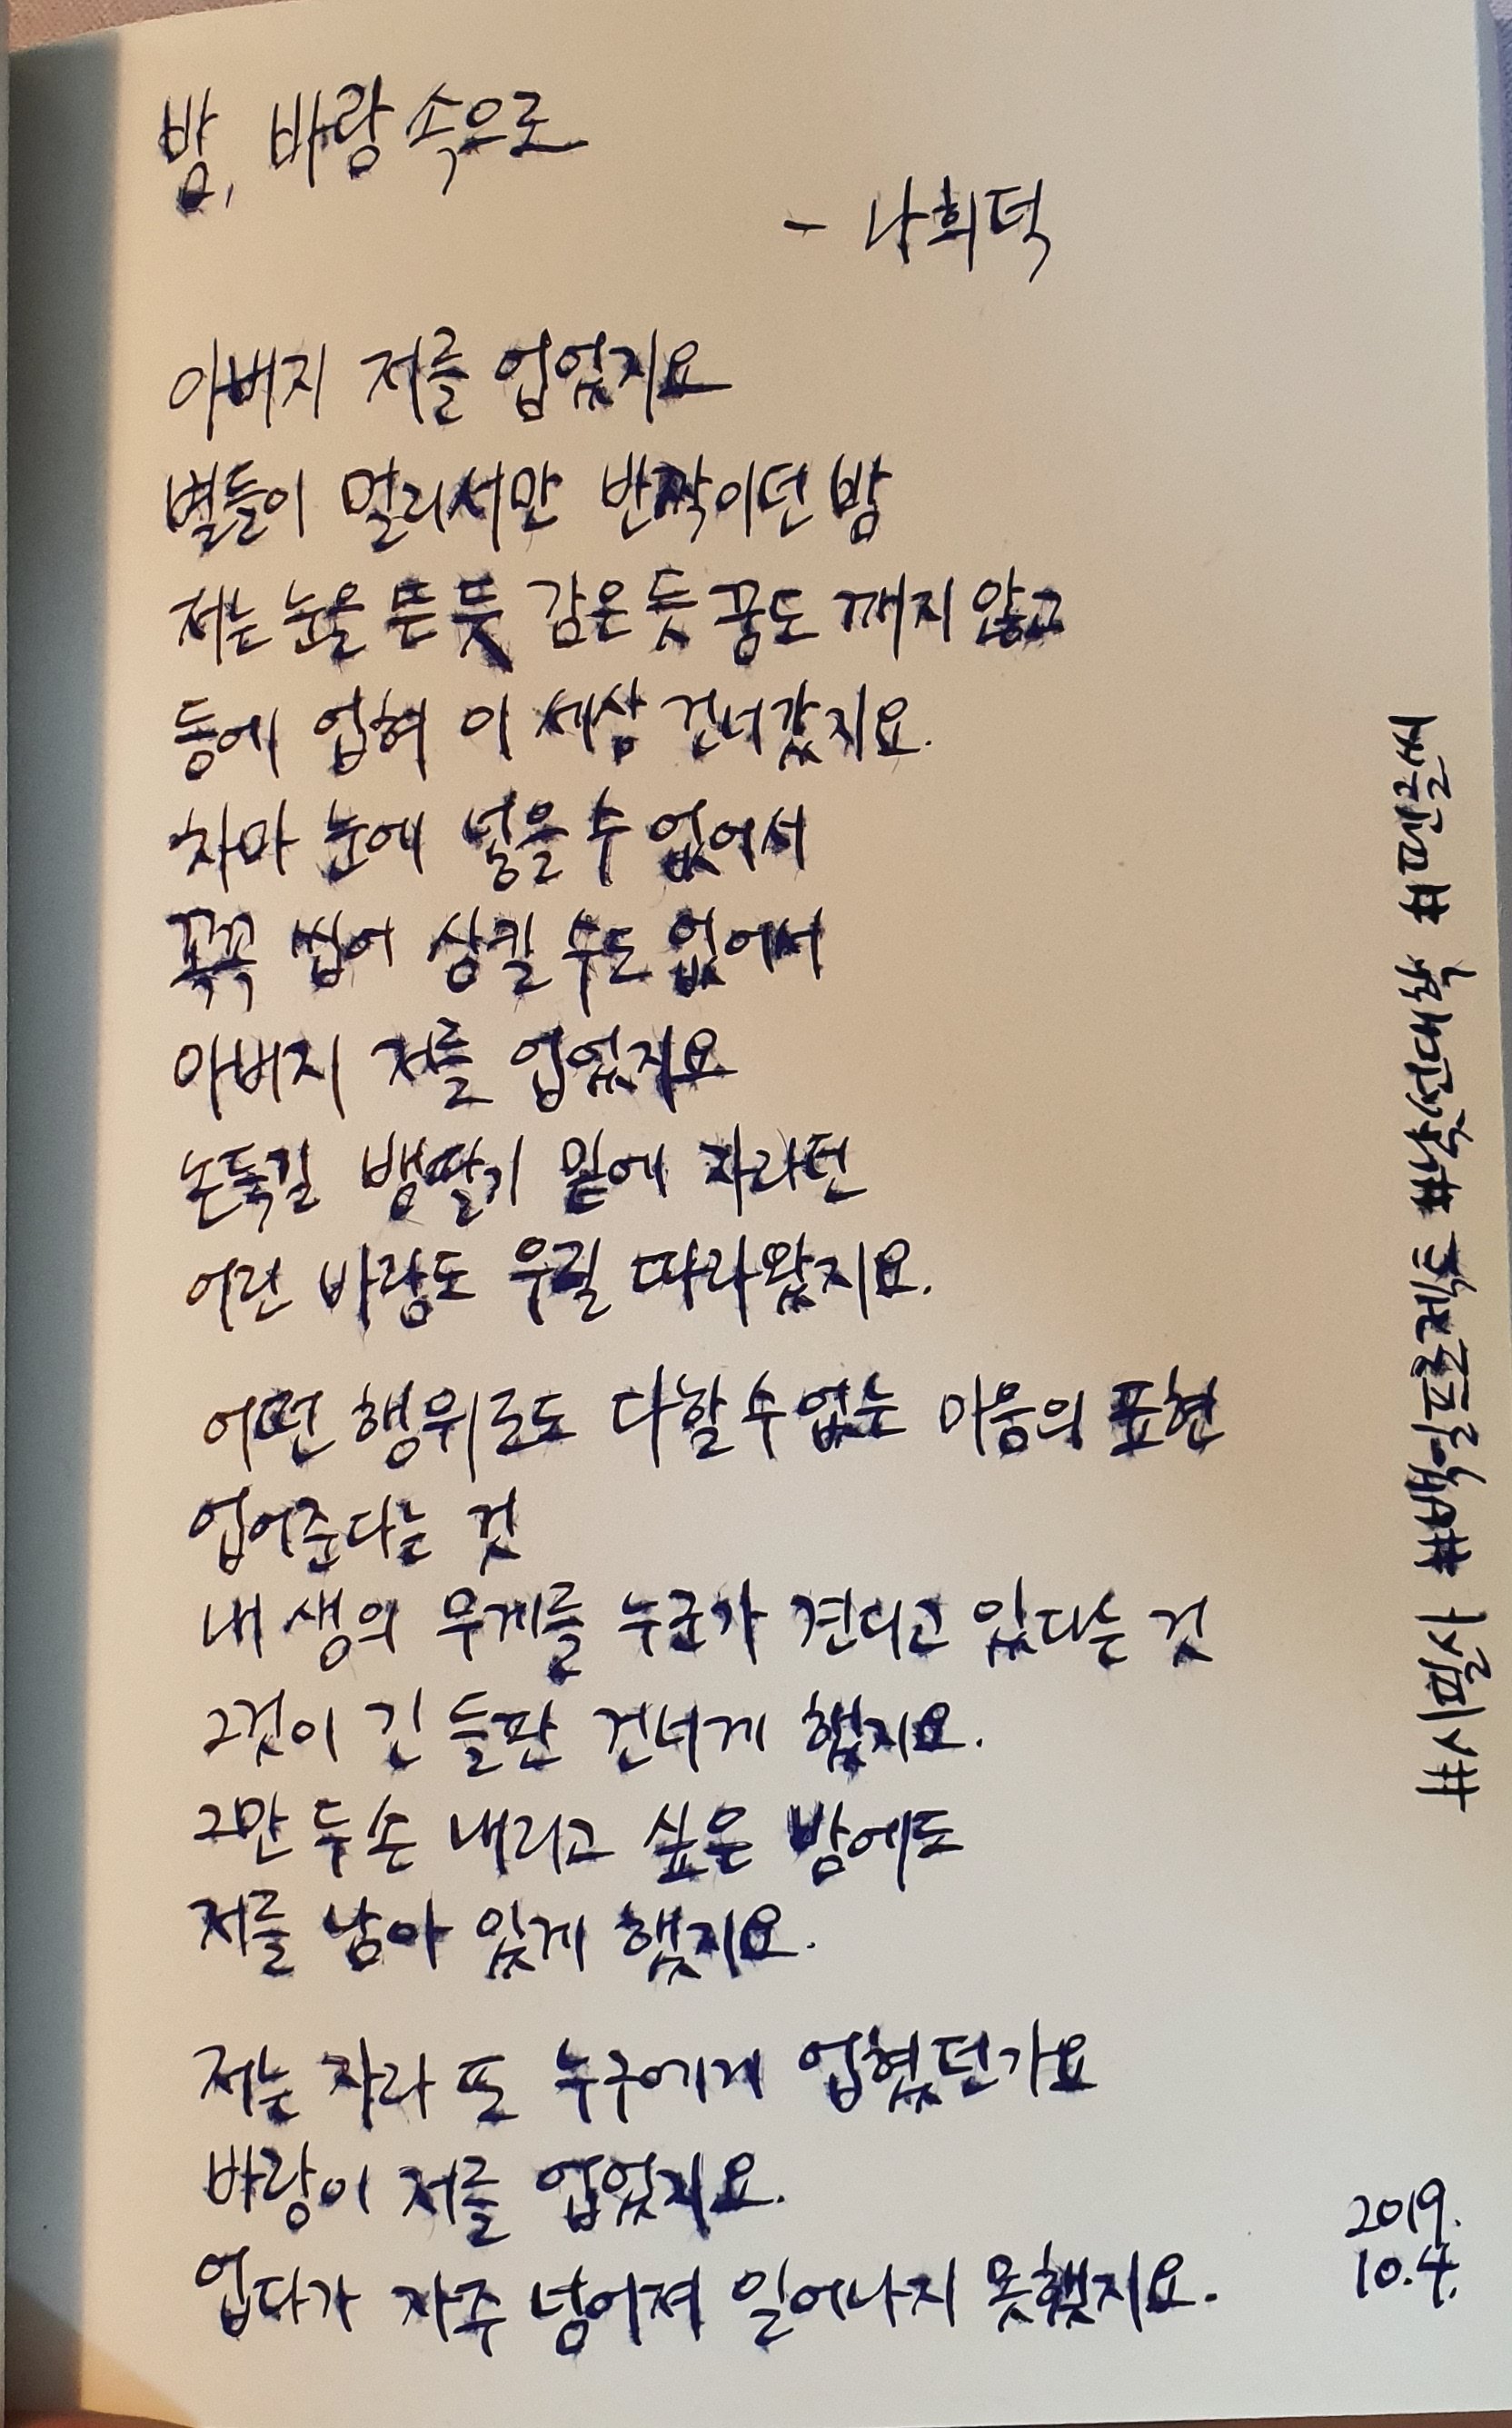 밤, 바람 속으로
- 나희덕
아버지 저를 업었지요
별들이 멀리서만 반짝이던 밤
저는 눈을 뜬 듯 감은 듯 꿈도 깨지 않고
등에 업혀 이 세상 건너갔지요.
차마 눈에 넣을 수 없어서
꼭꼭 씹어 삼킬 수도 없어서
아버지 저를 업었지요
논둑길 뱀딸기 밑에 자라던
어린 바람도 우릴 따라왔지요.
어떤 행위로도 다할 수 없는 마음의 표현
업어준다는 것
내 생의 무게를 누군가 견디고 있다는 것
그것이 긴 들판 건너게 했지요.
그만 두 손 내리고 싶은 밤에도
저를 남아 있게 했지요.
저는 자라 또 누구에게 업혔던가요
바람이 저를 업었지요.
업다가 자주 넘어져 일어나지 못했지요.
2019.
10.4.
#시필사 #매일프로젝트 #낙산대학 #펜글씨